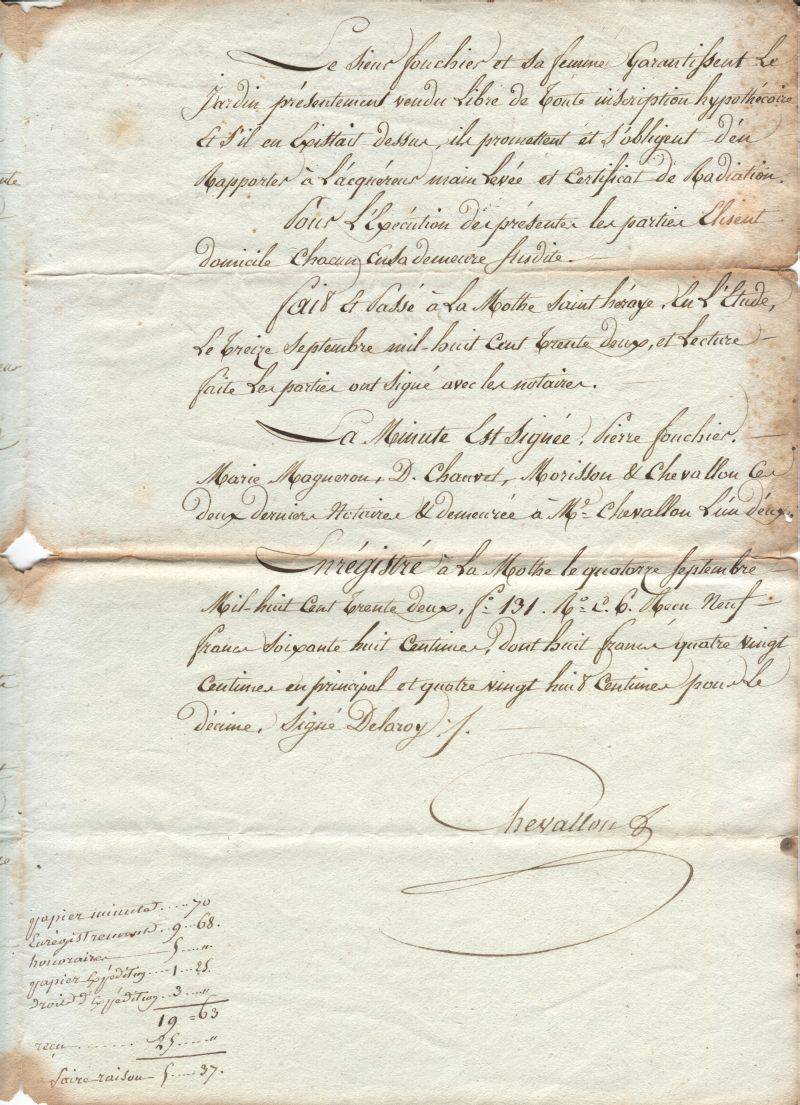 Le sieur fouchier et sa femme Garantissent Le
Jardin présentement vendu Libre de toute inscription hypothécaire
Et s'il en Existait dessus, ils promettent et s'obligent d'en
Rapporter à L'acquéreur main Levée et Certificat de Radiation.
Pour L'Exécution des présentes les parties Elisent
domicile Chacun En sa demeure susdite.
fait Et Passé à La Mothe saint héraye, En L'Etude,
Le treize septembre mil-huit Cent trente deux, et Lecture
faite Les parties ont signé avec les notaires.
La Minute Est signée, Pierre fouchier,
Marie Magneron, D. Chauvet, Morisson & Chevallon Ces
deux derniers Notaires & demeurée à Me. Chevallon L'un d'eux.
Enrégistré à La Mothe le quatorze septembre
Mil-huit Cent trente deux, fo. 131. Ro. C. 6. Reçu Neuf
francs soixante huit Centimes, dont huit francs quatre vingt
Centimes en principal et quatre vingt huit Centimes pour Le
décime, signé Delaroy ./.
Chevallon
papier minute ..... 70
Enrégistrement . 9 .. 68.
honoraires 5 .... "
papier Expédition .. 1 .. 25.
droit d'Expédition .. 3 .... "
19 = 63
reçu ........ 25 .... "
faire raison 5 .... 37.